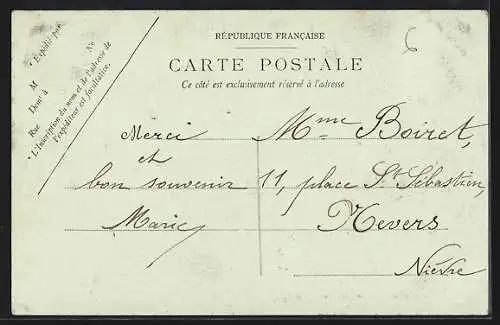 RÉPUBLIQUE FRANÇAISE
CARTE POSTALE
Ce côté est exclusivement réservé à l'adresse
6
* Expédié par
M
Demt à
Rue Nº
* L'inscription du nom et de l'adresse de
l'expéditeur est facultative.
Merci
et
bon souvenir
Marie
Mme Boiret,
11, place St Sébastien,
Nevers
Nièvre